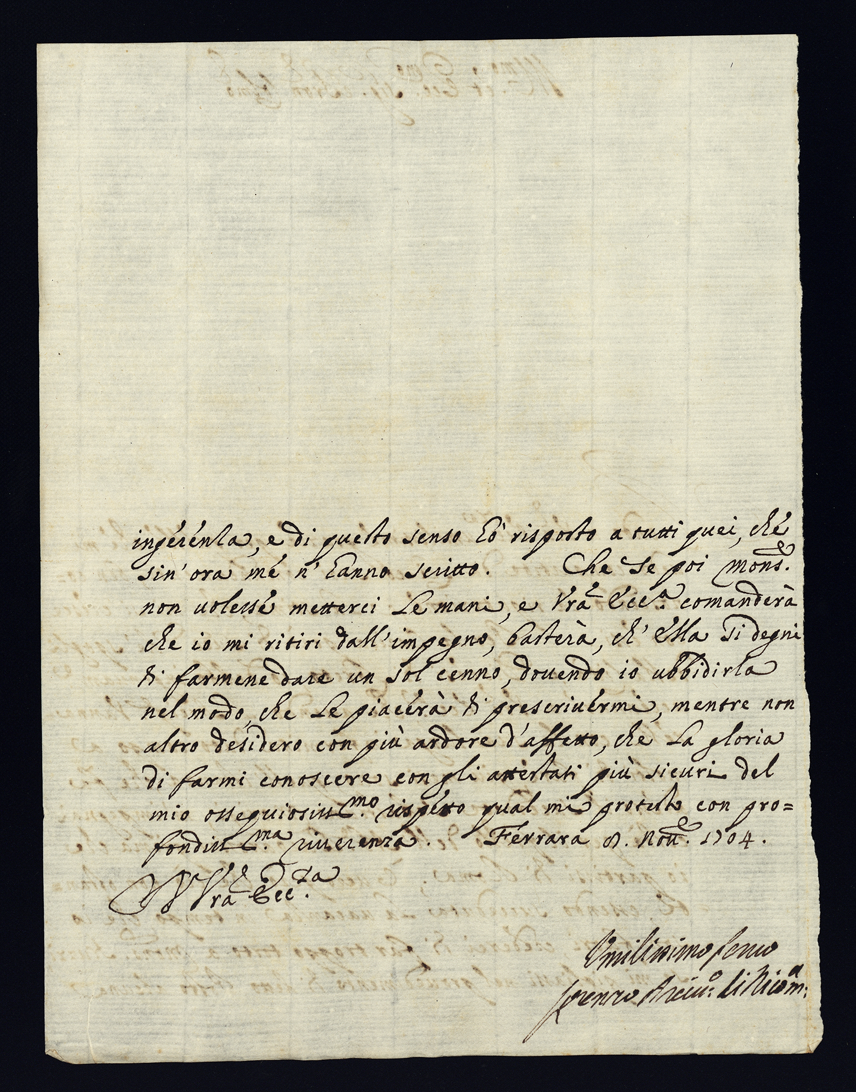 ingerenla, e di questo senso hò risposto a tutti quei, che
sin' ora me n' hanno scritto. Che se poi Mons.e
non volesse metterci le mani, e Vra Ecca comanderà
che io mi ritiri dall' impegno, basterà, ch' Ella si degni
di farmene dare un sol cenno, dovendo io ubbidirla
nel modo, che le piacerà di prescrivermi, mentre non
altro desidero con più ardore d'affetto, che la gloria
di farmi conoscere con gli attestati più sicuri del
mio ossequiosiss.mo rispetto qual mi protesto con pro=
fondiss.ma riverenza. Ferrara 8. Nov.e 1704.
Di Vra Ecc.za
Umilissimo servo
Arciv.o di Nicom.a